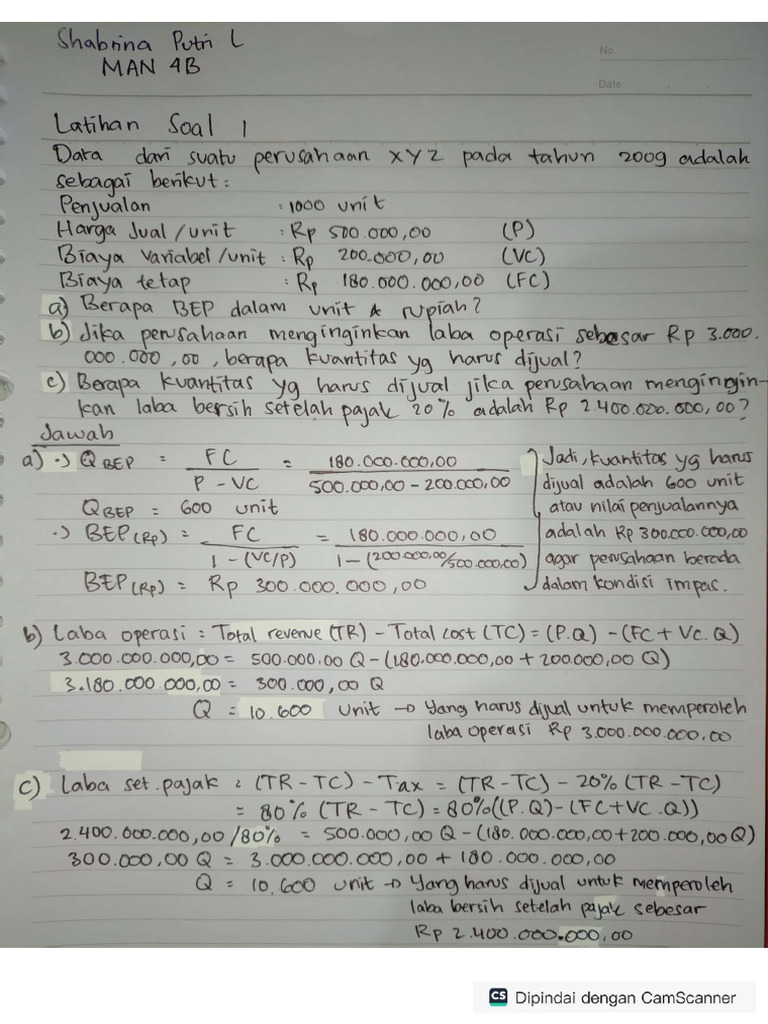 Shabrina Putri L
MAN 4B
No.
Date
Latihan Soal 1
Data dari suatu perusahaan XYZ pada tahun 2009 adalah
sebagai berikut :
Penjualan : 1000 unit
Harga Jual /unit : Rp 500.000,00 (P)
Biaya Variabel /unit : Rp 200.000,00 (VC)
Biaya tetap : Rp 180.000.000,00 (FC)
a) Berapa BEP dalam unit & rupiah?
b) Jika perusahaan menginginkan laba operasi sebesar Rp 3.000.
000.000,00, berapa kuantitas yg harus dijual?
c) Berapa kuantitas yg harus dijual jika perusahaan mengingin-
kan laba bersih setelah pajak 20% adalah Rp 2.400.000.000,00?
Jawab
a) ·) Q BEP = FC / P - VC = 180.000.000,00 / 500.000,00 - 200.000,00
Q BEP = 600 unit
·) BEP (Rp) = FC / 1 - (VC/P) = 180.000.000,00 / 1 - (200.000,00/500.000,00)
BEP (Rp) = Rp 300.000.000,00
Jadi, kuantitas yg harus
dijual adalah 600 unit
atau nilai penjualannya
adalah Rp 300.000.000,00
agar perusahaan berada
dalam kondisi impas.
b) Laba operasi = Total revenue (TR) - Total cost (TC) = (P.Q) - (FC + VC.Q)
3.000.000.000,00 = 500.000,00 Q - (180.000.000,00 + 200.000,00 Q)
3.180.000.000,00 = 300.000,00 Q
Q = 10.600 unit → Yang harus dijual untuk memperoleh
laba operasi Rp 3.000.000.000,00
c) Laba set. pajak = (TR - TC) - Tax = (TR - TC) - 20% (TR - TC)
= 80% (TR - TC) = 80% ((P.Q) - (FC + VC.Q))
2.400.000.000,00 / 80% = 500.000,00 Q - (180.000.000,00 + 200.000,00 Q)
300.000,00 Q = 3.000.000.000,00 + 180.000.000,00
Q = 10.600 unit → Yang harus dijual untuk memperoleh
laba bersih setelah pajak sebesar
Rp 2.400.000.000,00
CS Dipindai dengan CamScanner